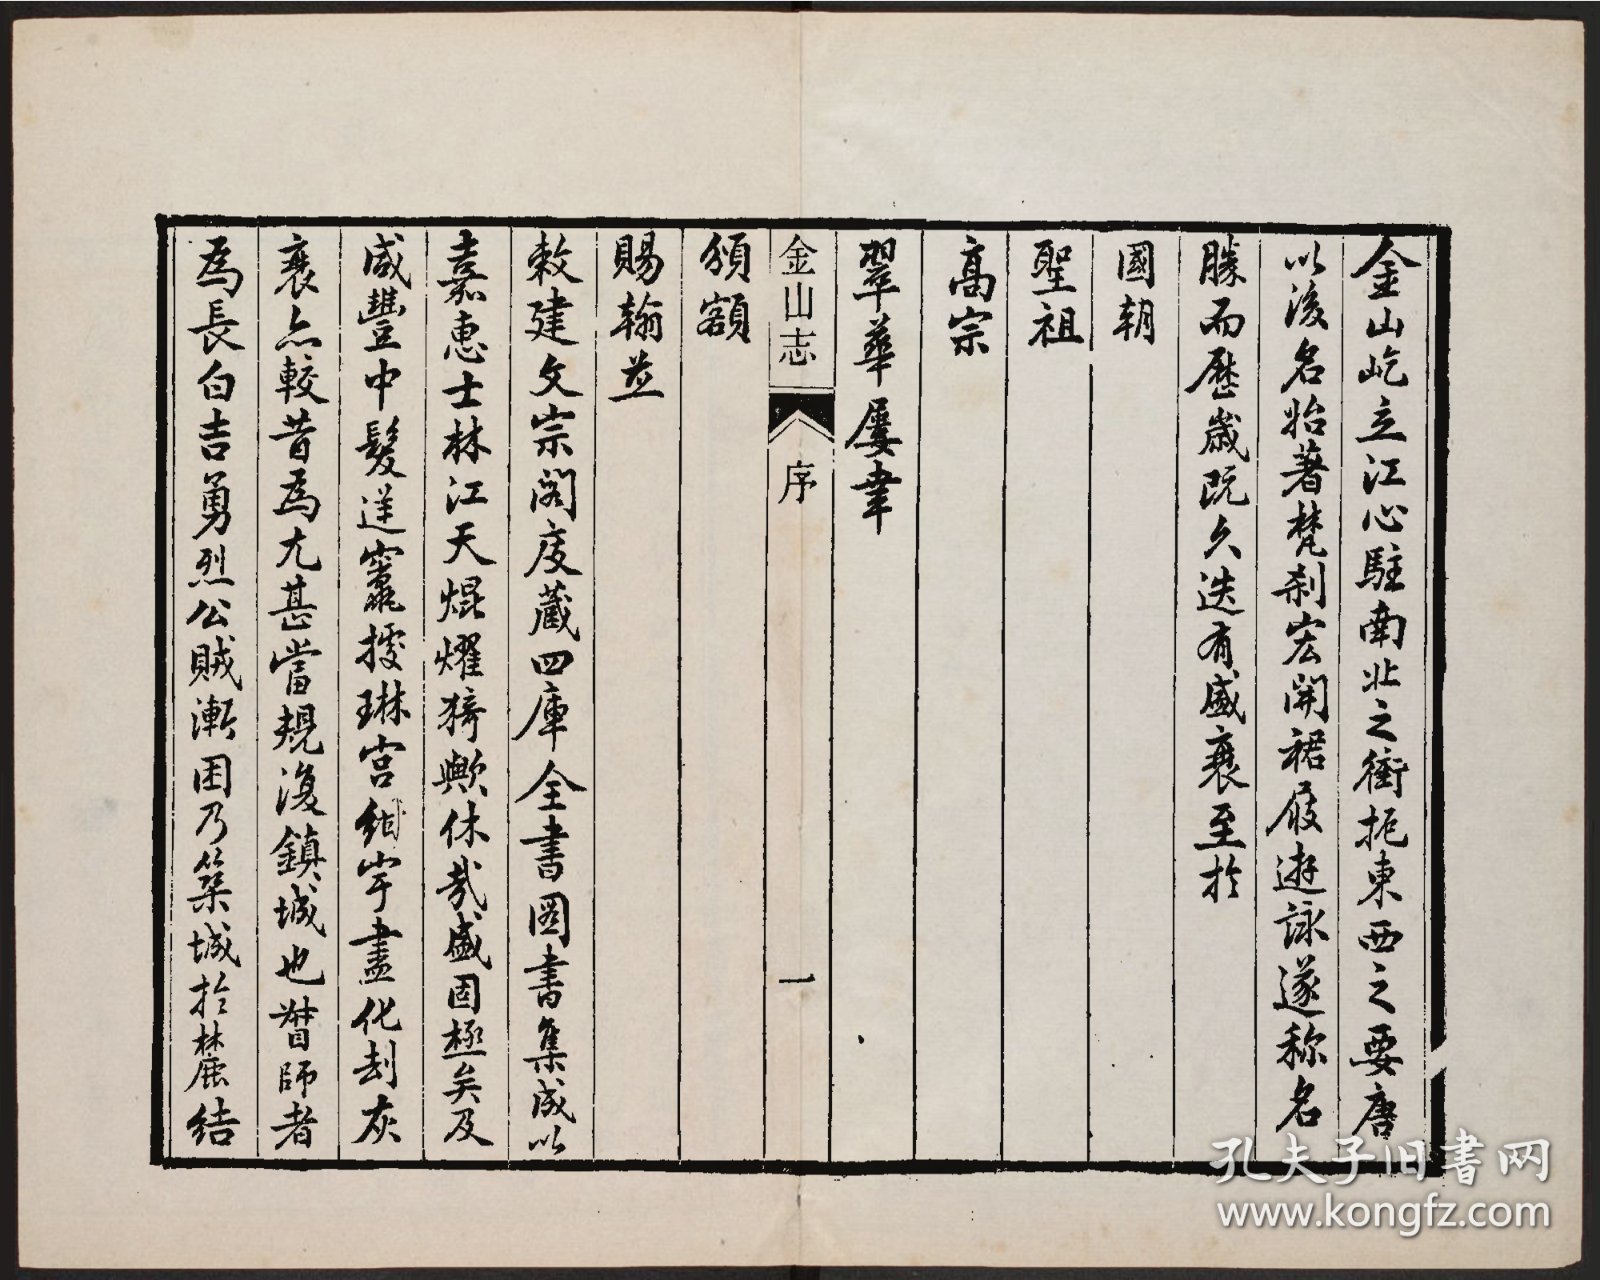 金山屹立江心駐南北之衝扼東西之要唐
以後名始著梵刹宏開裙屐遊詠遂稱名
勝而歷歲既久迭有盛衰至於
國朝
聖祖
高宗
翠華屢幸
金山志 序 一
頒額
賜翰並
敕建文宗閣庋藏四庫全書圖書集成以
嘉惠士林江天焜燿猗歟休哉盛固極矣及
咸豐中髮逆竄擾琳宮紺宇盡化刼灰
衰亦較昔為尤甚當規復鎮城也督師者
為長白吉勇烈公賊漸困乃築城於麓結
孔夫子旧书网
www.kongfz.com